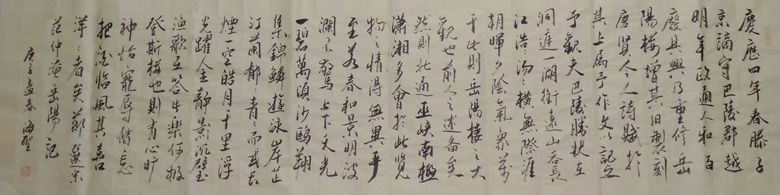 慶歷四年春滕子
京謫守巴陵郡越
明年政通人和百
廢具興乃重修岳
陽樓增其舊制刻
唐賢今人詩賦於
其上屬予作文以記之
予觀夫巴陵勝狀在
洞庭一湖銜遠山吞長
江浩浩湯湯橫無際涯
朝暉夕陰氣象萬
千此則岳陽樓之大
觀也前人之述備矣
然則北通巫峽南極
瀟湘多會於此覽
物之情得無異乎
至若春和景明波
瀾不驚上下天光
一碧萬頃沙鷗翔
集錦鱗遊泳岸芷
汀蘭郁郁青青而或長
煙一空皓月千里浮
光躍金靜影沉璧
漁歌互答此樂何極
登斯樓也則有心曠
神怡寵辱偕忘
把酒臨風其喜
洋洋者矣節錄宋
范仲淹岳陽之記
庚子孟春